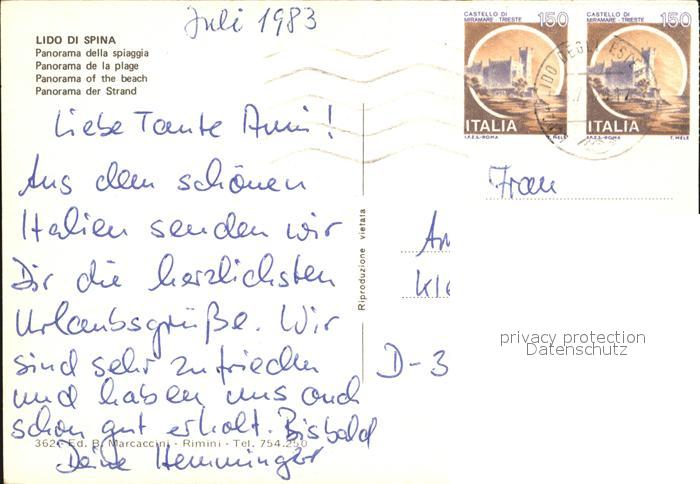 Juli 1983
LIDO DI SPINA
Panorama della spiaggia
Panorama de la plage
Panorama of the beach
Panorama der Strand
CASTELLO DI MIRAMARE - TRIESTE 150
ITALIA
I.P.Z.S. - ROMA T. MELE
CASTELLO DI MIRAMARE - TRIESTE 150
ITALIA
I.P.Z.S. - ROMA T. MELE
LIDO DEGLI
Liebe Tante Anni!
Aus dem schönen
Italien senden wir
Dir die herzlichsten
Urlaubsgrüße. Wir
sind sehr zufrieden
und haben uns auch
schon gut erholt. Bisbald
Deine Hemminger
362 - Ed. B. Marcaccini - Rimini - Tel. 754.250
Riproduzione vietata
Frau
An
Kle
D-3
privacy protection
Datenschutz